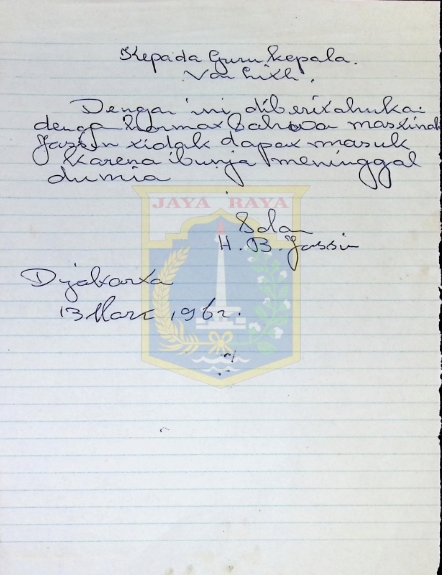 Kepada Guru kepala.
Van Lith.
Dengan ini diberitahukan
dengan hormat bahwa maskinah
Jassin tidak dapat masuk
karena ibunja meninggal
dunia
JAYA RAYA
Salam
H. B. Jassin
Djakarta
13 Maret 1962.